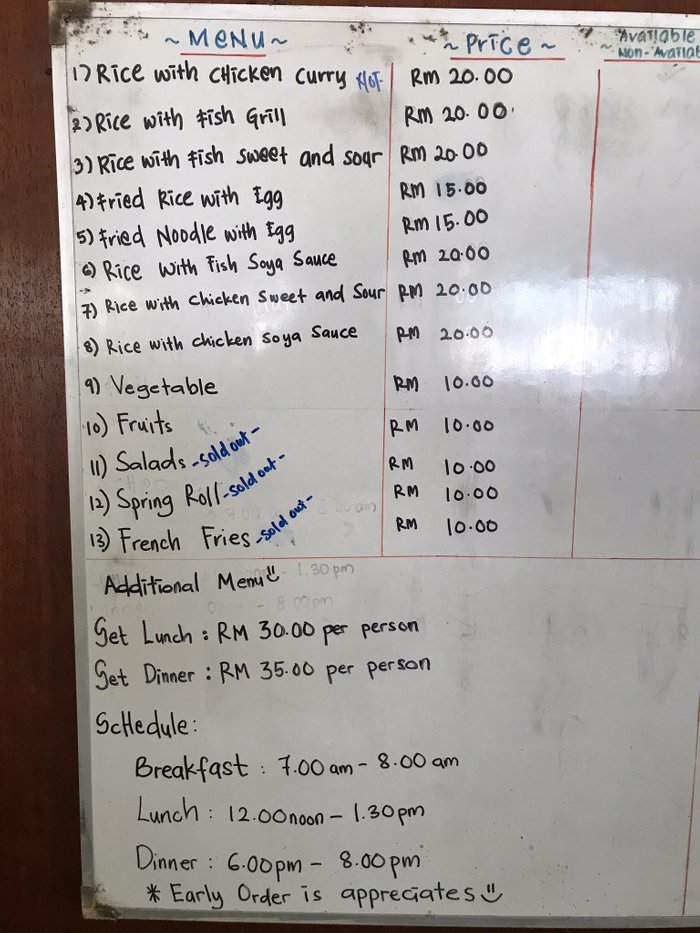 ~ MENU ~ ~ Price ~ Available
~ Non-Availab
1) Rice with chicken curry Hot RM 20.00
2) Rice with Fish Grill RM 20.00
3) Rice with Fish sweet and sour RM 20.00
4) Fried Rice with Egg RM 15.00
5) Fried Noodle with Egg RM 15.00
6) Rice with Fish Soya Sauce RM 20.00
7) Rice with chicken Sweet and Sour RM 20.00
8) Rice with chicken Soya Sauce RM 20.00
9) Vegetable RM 10.00
10) Fruits RM 10.00
11) Salads - sold out - RM 10.00
12) Spring Roll - sold out - RM 10.00
13) French Fries - sold out - RM 10.00
Additional Menu
Set Lunch : RM 30.00 per person
Set Dinner : RM 35.00 per person
Schedule :
Breakfast : 7.00 am - 8.00 am
Lunch : 12.00noon - 1.30pm
Dinner : 6.00pm - 8.00pm
* Early Order is appreciates